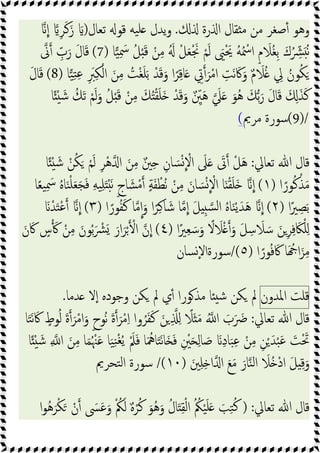 وهو أصغر من مثقال الذرة لذلك. ويدل عليه قوله تعالى(يَا زَكَرِيَّا إِنَّا
نُبَشِّرُكَ بِغُلَامٍ اسْمُهُ يَحْيَىٰ لَمْ نَجْعَل لَّهُ مِن قَبْلُ سَمِيًّا (7) قَالَ رَبِّ أَنَّىٰ
يَكُونُ لِي غُلَامٌ وَكَانَتِ امْرَأَتِي عَاقِرًا وَقَدْ بَلَغْتُ مِنَ الْكِبَرِ عِتِيًّا (8) قَالَ
كَذَٰلِكَ قَالَ رَبُّكَ هُوَ عَلَيَّ هَيِّنٌ وَقَدْ خَلَقْتُكَ مِن قَبْلُ وَلَمْ تَكُ شَيْئًا
(9)/سورة مريم)
قال الله تعالى: هَلْ أَتَىٰ عَلَى الْإِنسَانِ حِينٌ مِّنَ الدَّهْرِ لَمْ يَكُن شَيْئًا
مَّذْكُورًا (١) إِنَّا خَلَقْنَا الْإِنسَانَ مِن نُّطْفَةٍ أَمْشَاجٍ نَّبْتَلِيهِ فَجَعَلْنَاهُ سَمِيعًا
بَصِيرًا (٢) إِنَّا هَدَيْنَاهُ السَّبِيلَ إِمَّا شَاكِرًا وَإِمَّا كَفُورًا (٣) إِنَّا أَعْتَدْنَا
لِلْكَافِرِينَ سَلَاسِلَ وَأَغْلَالًا وَسَعِيرًا (٤) إِنَّ الْأَبْرَارَ يَشْرَبُونَ مِن كَأْسٍ كَانَ
مِزَاجُهَا كَافُورًا (٥)/سورةالإنسان
قلت المدون لم يكن شيئا مذكورا أي لم يكن وجوده إلا عدما.
قال الله تعالى: ضَرَبَ اللَّهُ مَثَلًا لِّلَّذِينَ كَفَرُوا امْرَأَةَ نُوحٍ وَامْرَأَةَ لُوطٍ كَانَتَا
تَحْتَ عَبْدَيْنِ مِنْ عِبَادِنَا صَالِحَيْنِ فَخَانَتَاهُمَا فَلَمْ يُغْنِيَا عَنْهُمَا مِنَ اللَّهِ شَيْئًا
وَقِيلَ ادْخُلَا النَّارَ مَعَ الدَّاخِلِينَ (١٠)/ سورة التحريم
قال الله تعالى: (كُتِبَ عَلَيْكُمُ الْقِتَالُ وَهُوَ كُرْهٌ لَّكُمْ وَعَسَىٰ أَن تَكْرَهُوا